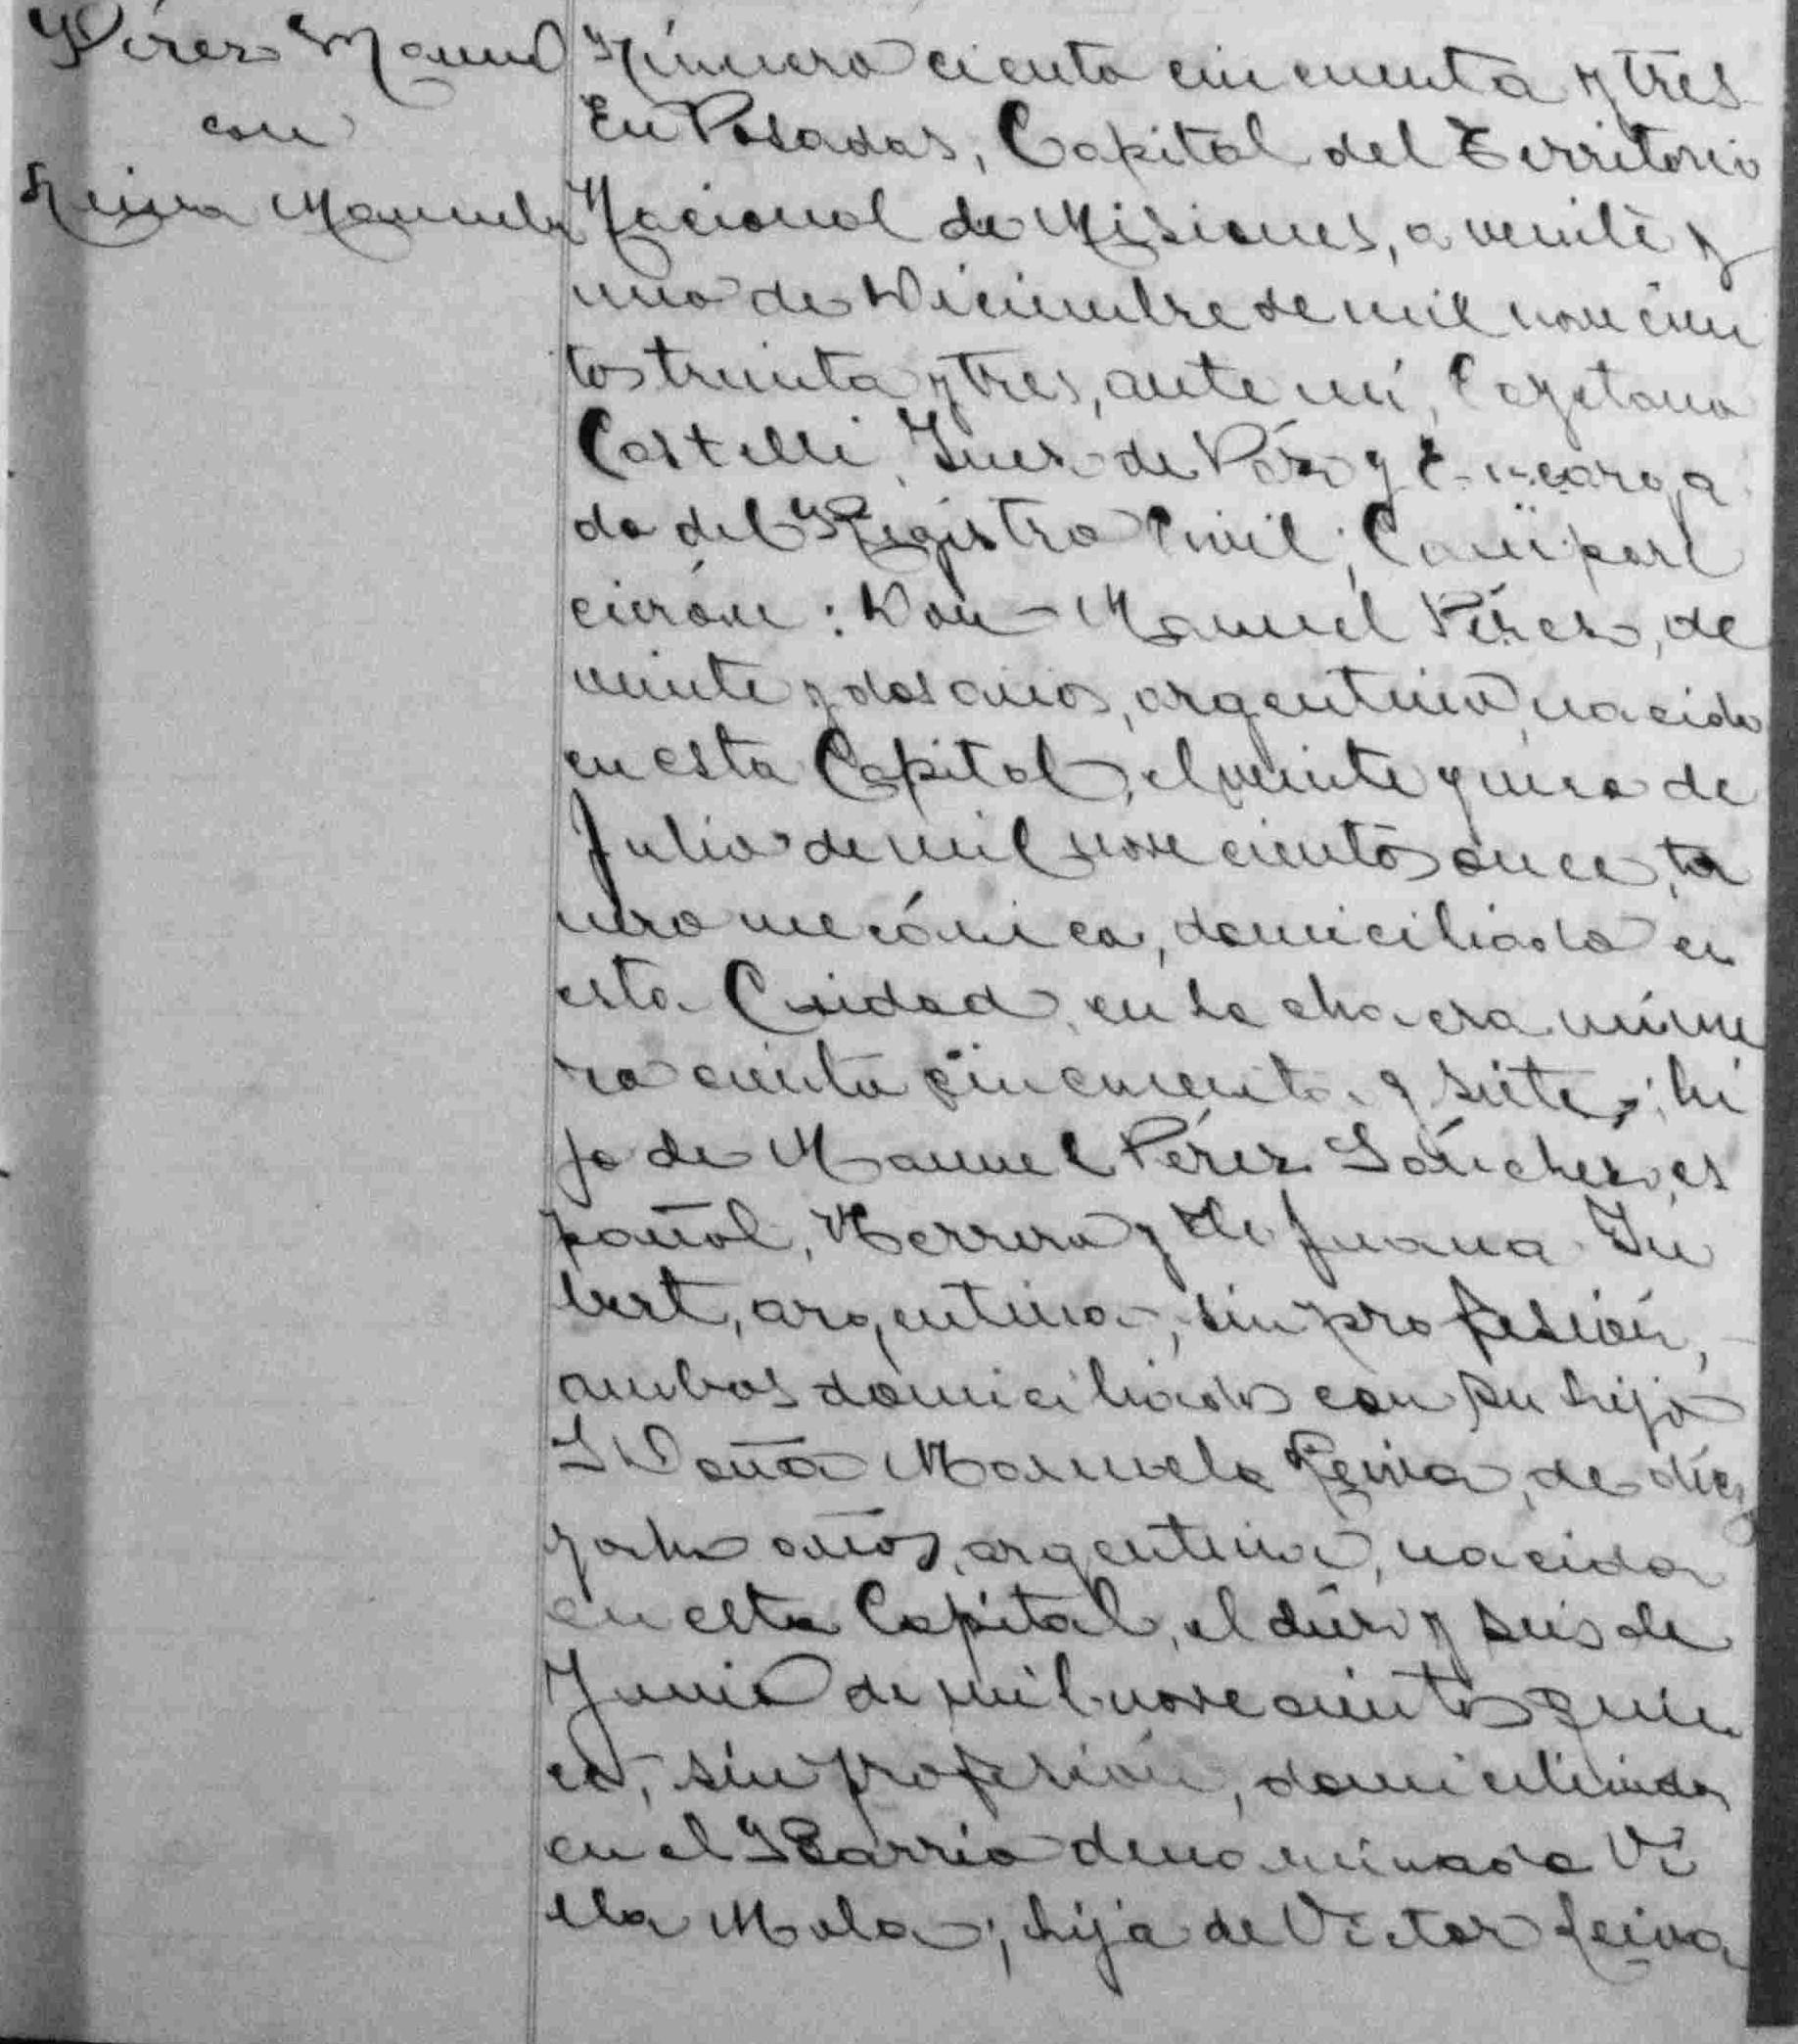 Pérez Manuel
con
Leiva Manuela
Número ciento cincuenta y tres
En Posadas, Capital del Territorio
Nacional de Misiones, a veinte y
uno de Diciembre de mil novecien
tos treinta y tres, ante mí, Cayetano
Castelli, Juez de Páz y Encarga
do del Registro Civil, Compare
cierón: Don Manuel Pérez, de
veinte y dos años, argentino, nacido
en esta Capital, el veinte y uno de
Julio de mil novecientos once, tor
nero mecánico, domiciliado en
esta Ciudad, en la chacra núme
ro ciento cincuenta y siete; hi
jo de Manuel Pérez Sánchez, es
pañol, Herrero y de Juana
argentina, sin profesión,
ambos domiciliados con su hijo
Y Doña Manuela Leiva, de diez
y ocho años, argentina, nacida
en esta Capital, el diez y seis de
Junio de mil novecientos quin
ce, sin profesión, domiciliada
en el Barrio denominado Vi
lla Mola; hija de Victor Leiva